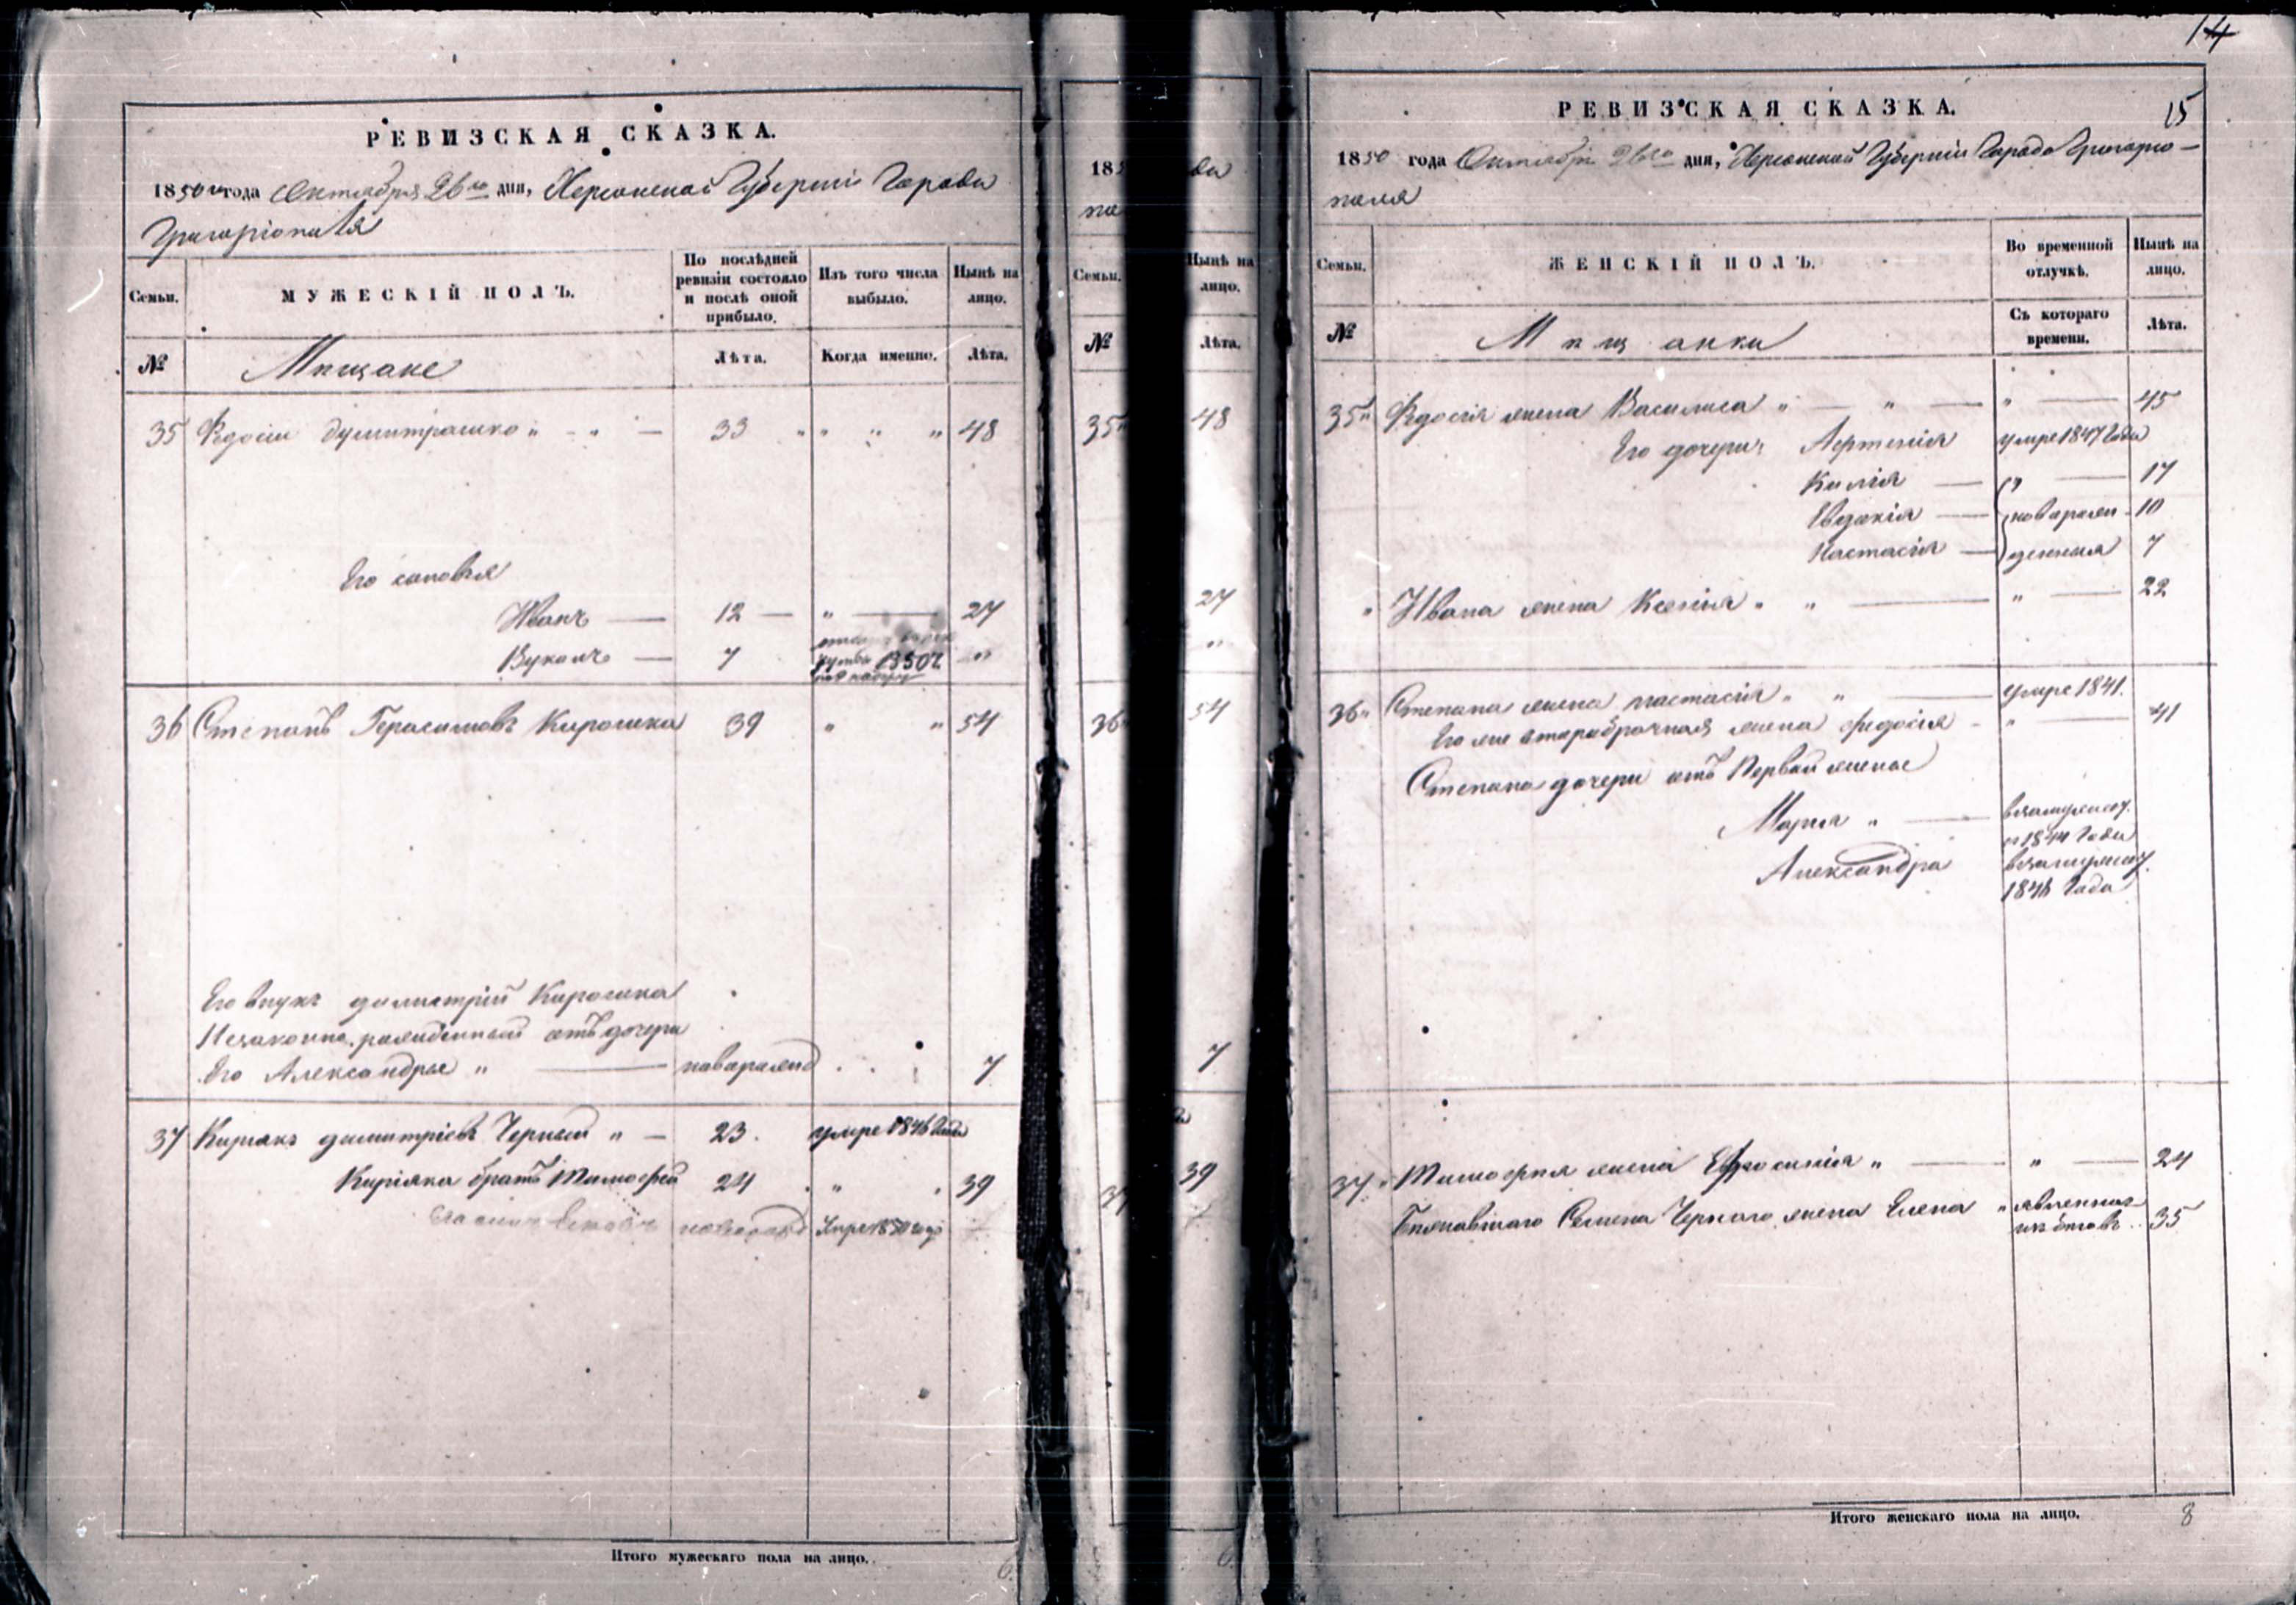 14
РЕВИЗСКАЯ СКАЗКА.
1850 года Октября 26го дня, Херсонской Губернiи Города
Григорiополя
Семьи.
МУЖЕСКIЙ ПОЛЪ.
По послѣдней ревизiи состояло и послѣ оной прибыло.
Изъ того числа выбыло.
Нынѣ на лицо.
№
Мѣщане
Лѣта.
Когда именно.
Лѣта.
35 Федосiй Думитрашко " - " — 33 " " " " 48
Его сыновья
Иванъ — 12 — " — 27
Вуколъ — 7 1850 г. "
36 Степанъ Герасимовъ Кирошка 39 " " 54
Его внукъ Димитрiй Кирошка
Незаконно рожденный отъ дочери
Его Александры " — новорожд 7
37 Кирiакъ Димитрiевъ Черный " — 23 умре 1846 года
Кирiяка братъ Тимофей 24 " 39
новорожд Умре 1850 года
Итого мужескаго пола на лицо.
6
185 ода
по
Семьи.
Нынѣ на лицо.
№
Лѣта.
35 48
27
"
36 54
7
39
37
6
15
РЕВИЗСКАЯ СКАЗКА.
1850 года Октября 26го дня, Херсонской Губернiи Города Григорiо-
поля
Семьи.
ЖЕНСКIЙ ПОЛЪ.
Во временной отлучкѣ.
Нынѣ на лицо.
№
Мѣщанки
Съ котораго времени.
Лѣта.
35 " Федосiя жена Василиса " — " — " — 45
Его дочери: умре 1847 года
— " — 17
Евдокiя — новорож- 10
Настасiя — денныя 7
" Ивана жена Ксенiя " " — " — 22
36 " Степана жена Настасiя " " — умре 1841.
Его же второбрачная жена Федосiя - " — 41
Степана дочери отъ Первой жены
Марiя " — взамужест.
1844 года
Александра взамужест.
1846 года
37 " Тимофея жена Ефросинiя " — " — 24
Бежавшаго Семена Чернаго жена Елена " явленная
изъ бѣговъ. 35
Итого женскаго пола на лицо.
8